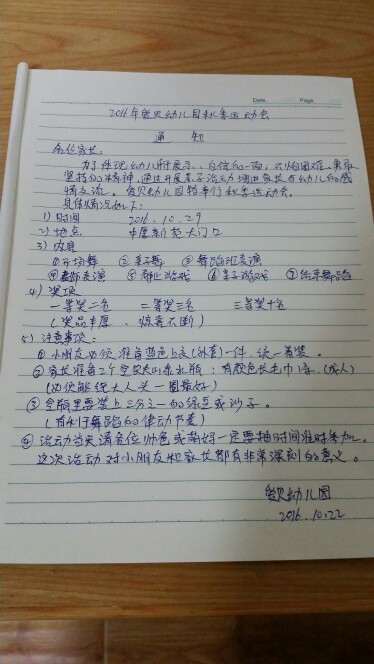 Date      Page
2016年爱贝幼儿园秋季运动会
通 知
各位家长：
为了体现幼儿积展示、自信的一面，不怕困难、勇敢
坚持的精神，通过开展亲子活动增进家长与幼儿的感
情交流。爱贝幼儿园特举行秋季运动会。
具体情况如下：
1）时间 2016.10.29
2）地点 中原新苑大门口
3）内容
①开场舞 ②亲子舞 ③舞蹈班表演
④教师表演 ⑤ 游戏 ⑥亲子游戏 ⑦结束舞蹈
4）奖项
一等奖二名 二等奖三名 三等奖十名
（奖品丰厚，惊喜不断）
5）注意事项：
①小朋友必须准备蓝色上衣(外套)一件，统一着装。
②家长准备2个空农夫山泉水瓶；有颜色长毛巾1条，(成人)
(必须能绕大人头一圈系好)
③空瓶里要装上三分之一的绿豆或沙子。
(有利于舞蹈的律动节奏)
④活动当天请各位帅爸或美妈一定要抽时间准时参加。
这次活动对小朋友和家长都有非常深刻的意义。
爱贝幼儿园
2016.10.22